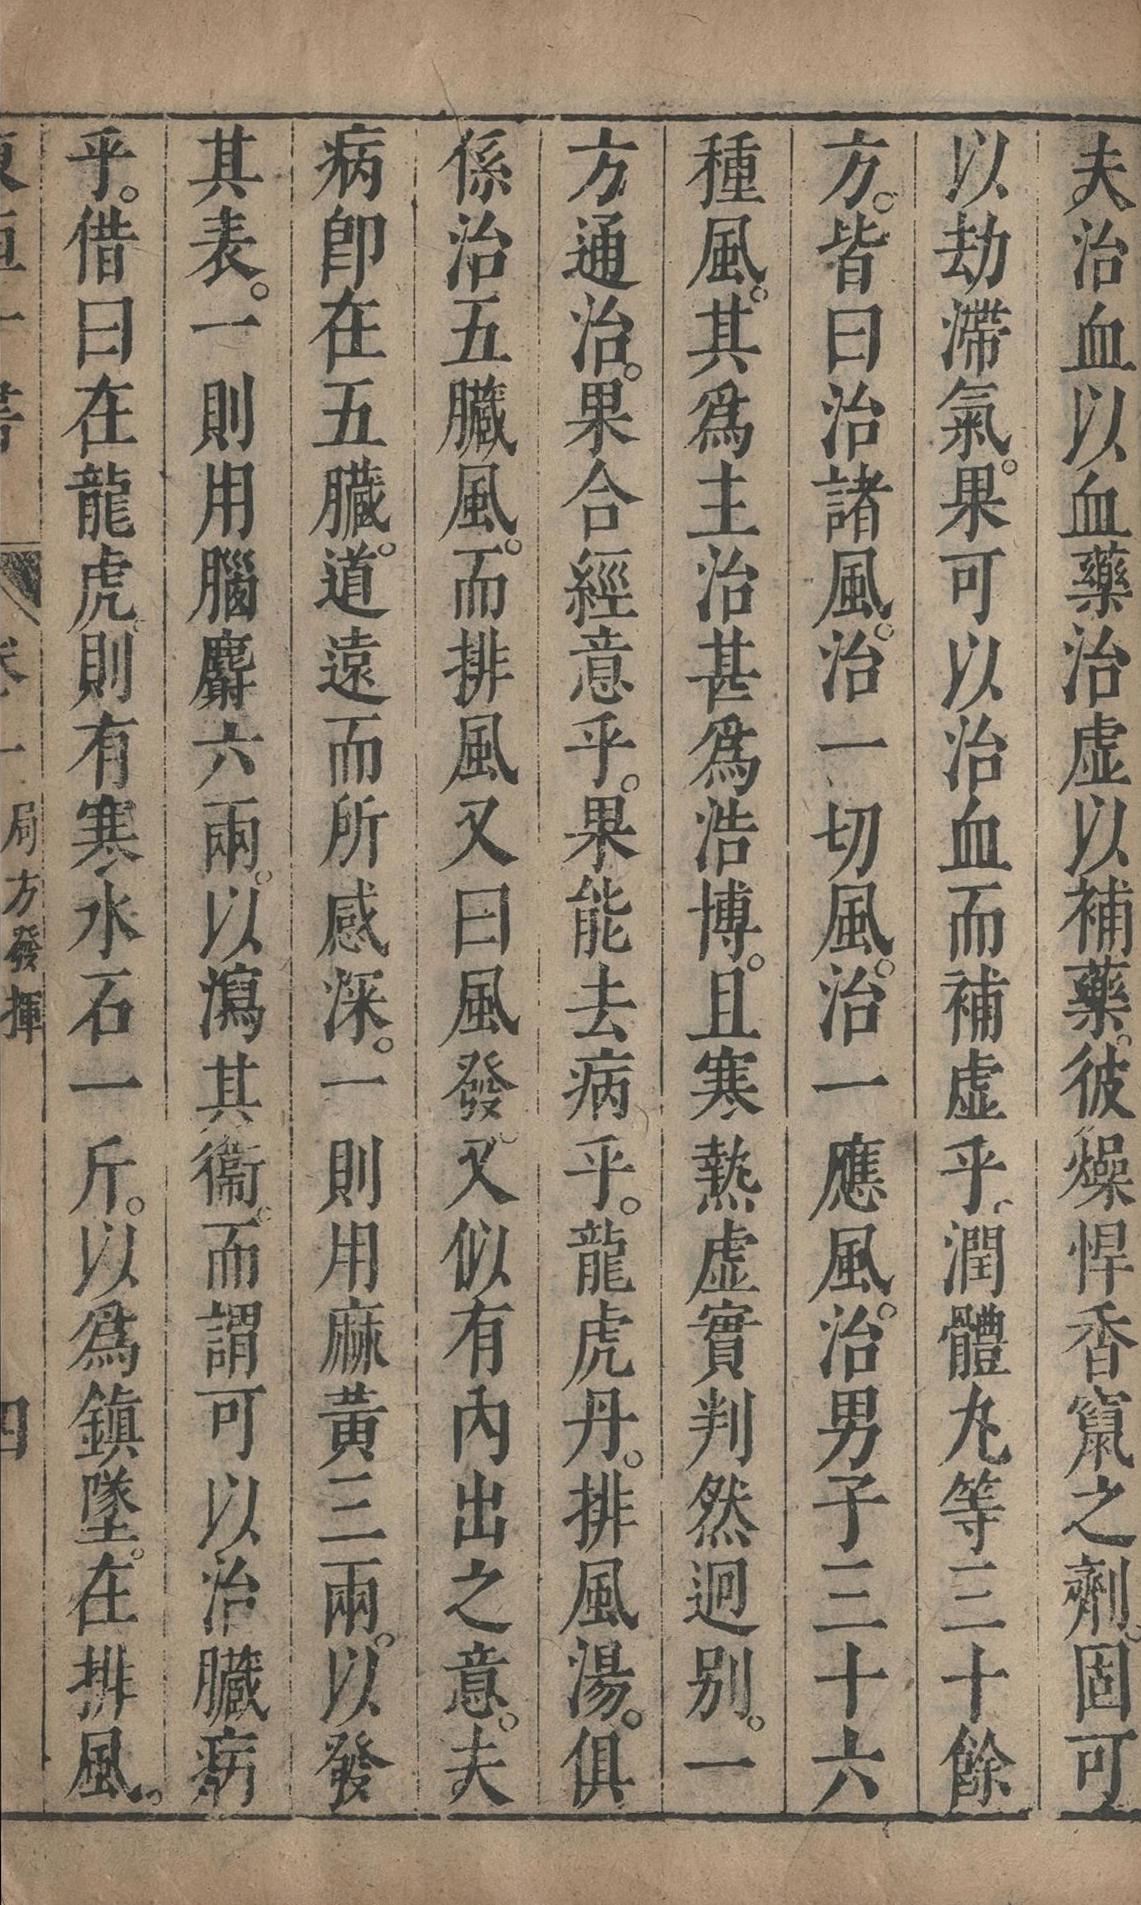 夫治血以血藥治虛以補藥。彼燥悍香竄之劑。固可
以劫滯氣。果可以治血而補虛乎。潤體丸等三十餘
方。皆曰治諸風。治一切風。治一應風。治男子三十六
種風。其爲主治甚爲浩博。且寒熱虛實判然迥别。一
方通治。果合經意乎。果能去病乎。龍虎丹。排風湯。俱
係治五臟風。而排風又曰風發。又似有內出之意。夫
病卽在五臟。道遠而所感深。一則用麻黃三兩。以發
其表。一則用腦麝六兩。以瀉其衞。而謂可以治臟病
乎。借曰在龍虎。則有寒水石一斤。以爲鎮墜。在排風。
東垣十書 卷一 局方發揮 四